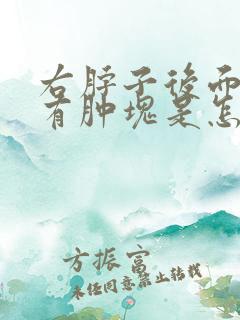 右脖子後面
有肿塊是怎
方振富
未经同意禁止转载